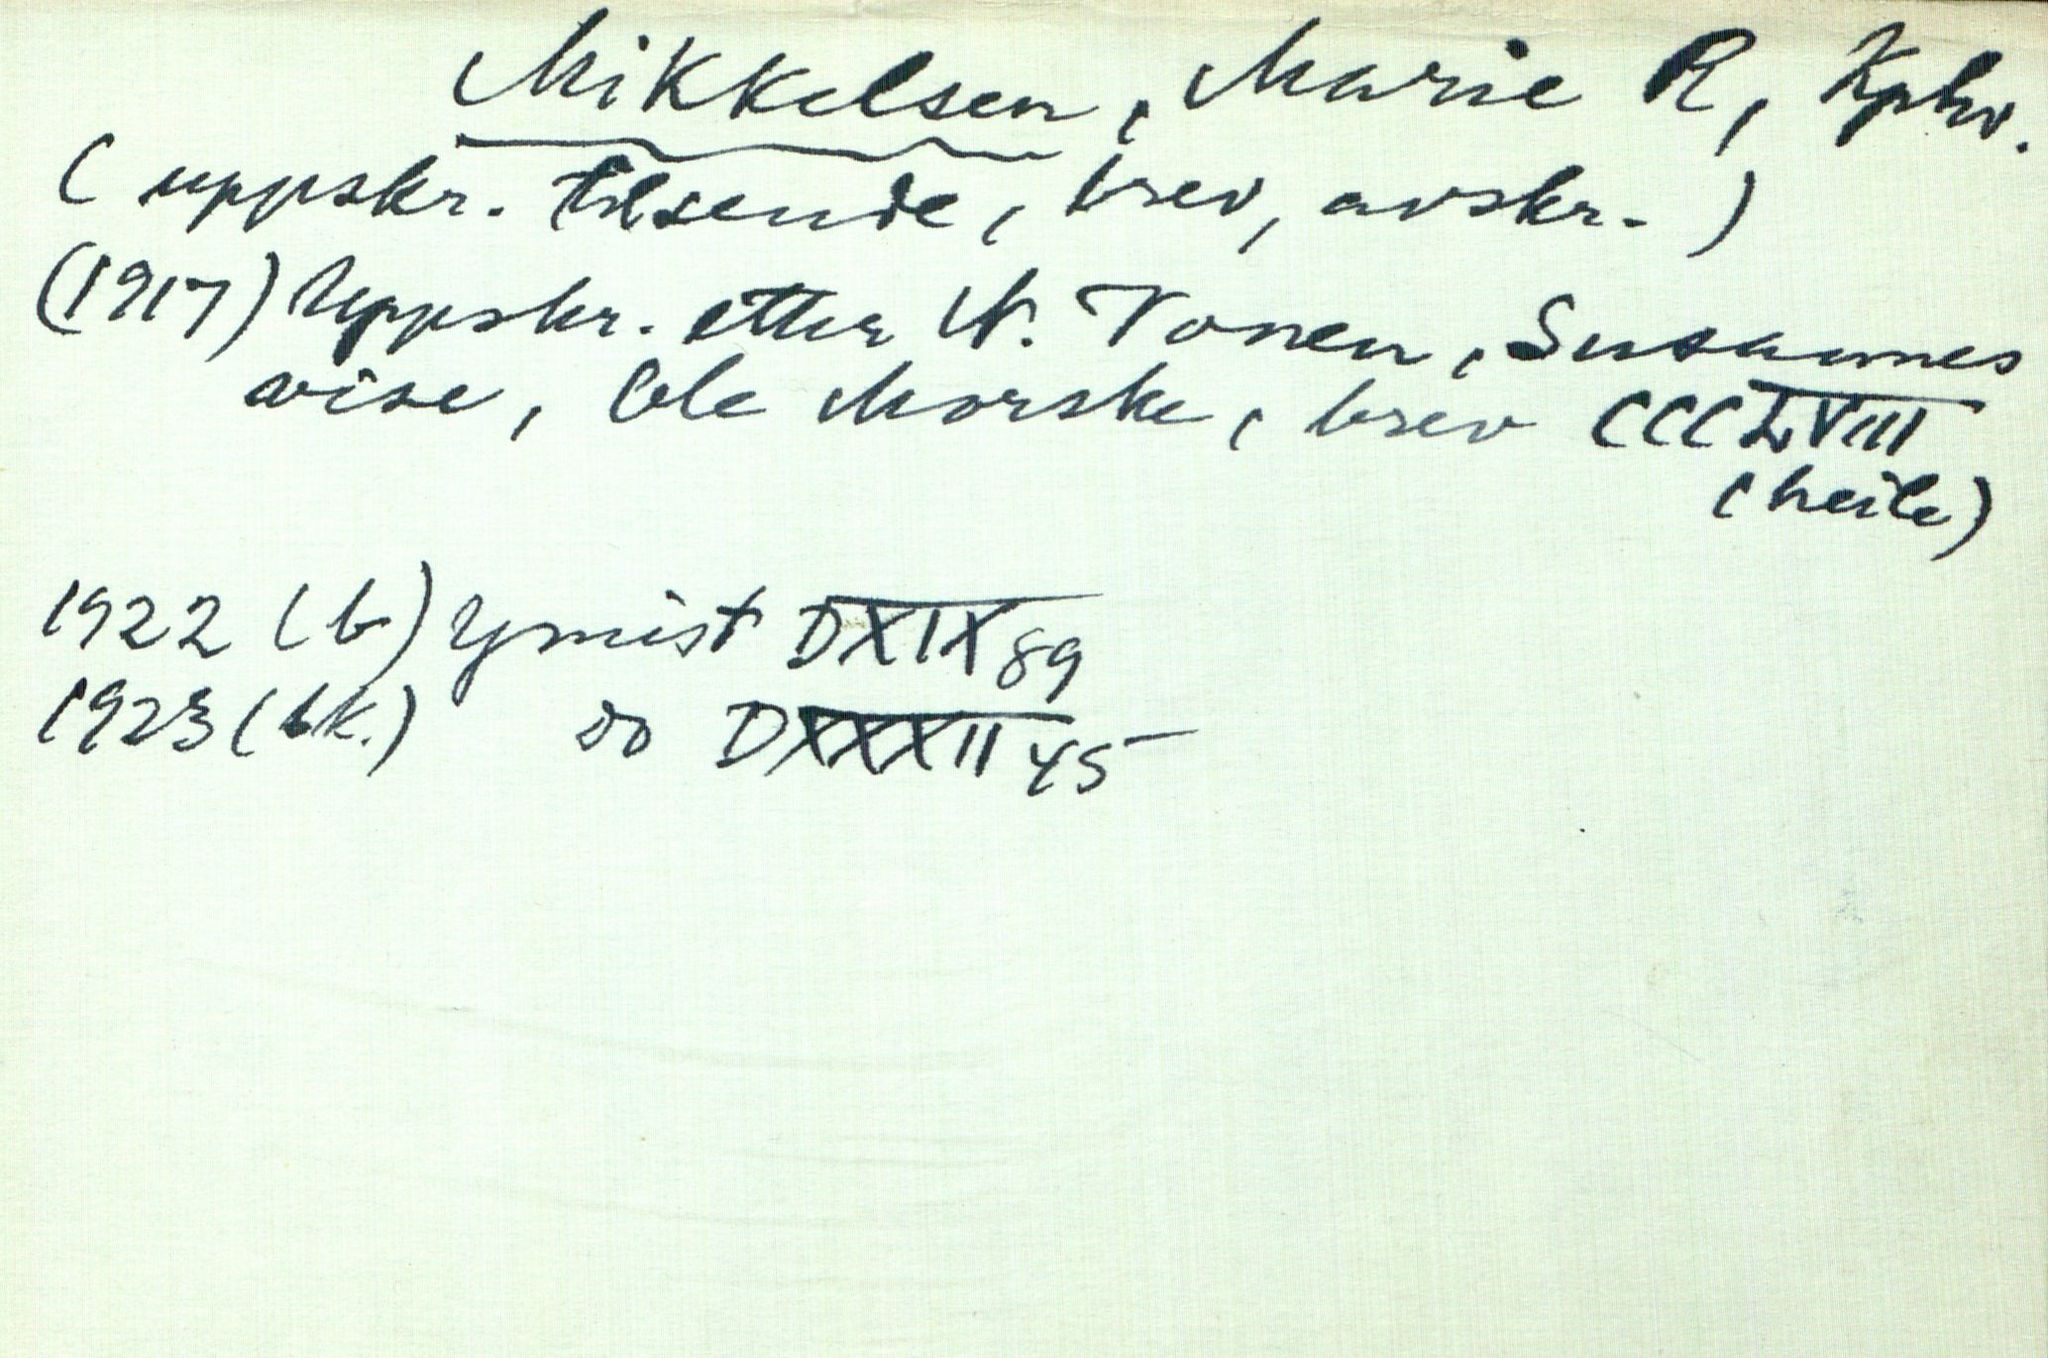 Mikkelsen, Marie R, Kphv.
(uppskr. tilsende, brev, avskr.)
(1917) Uppskr. etter N. Tonen, Susannes
vise, Ole Morske, brev CCCLVIII
(heile)
1922 (b) Ymist DXIX 89
1923 (bk.) do DXXXII 45